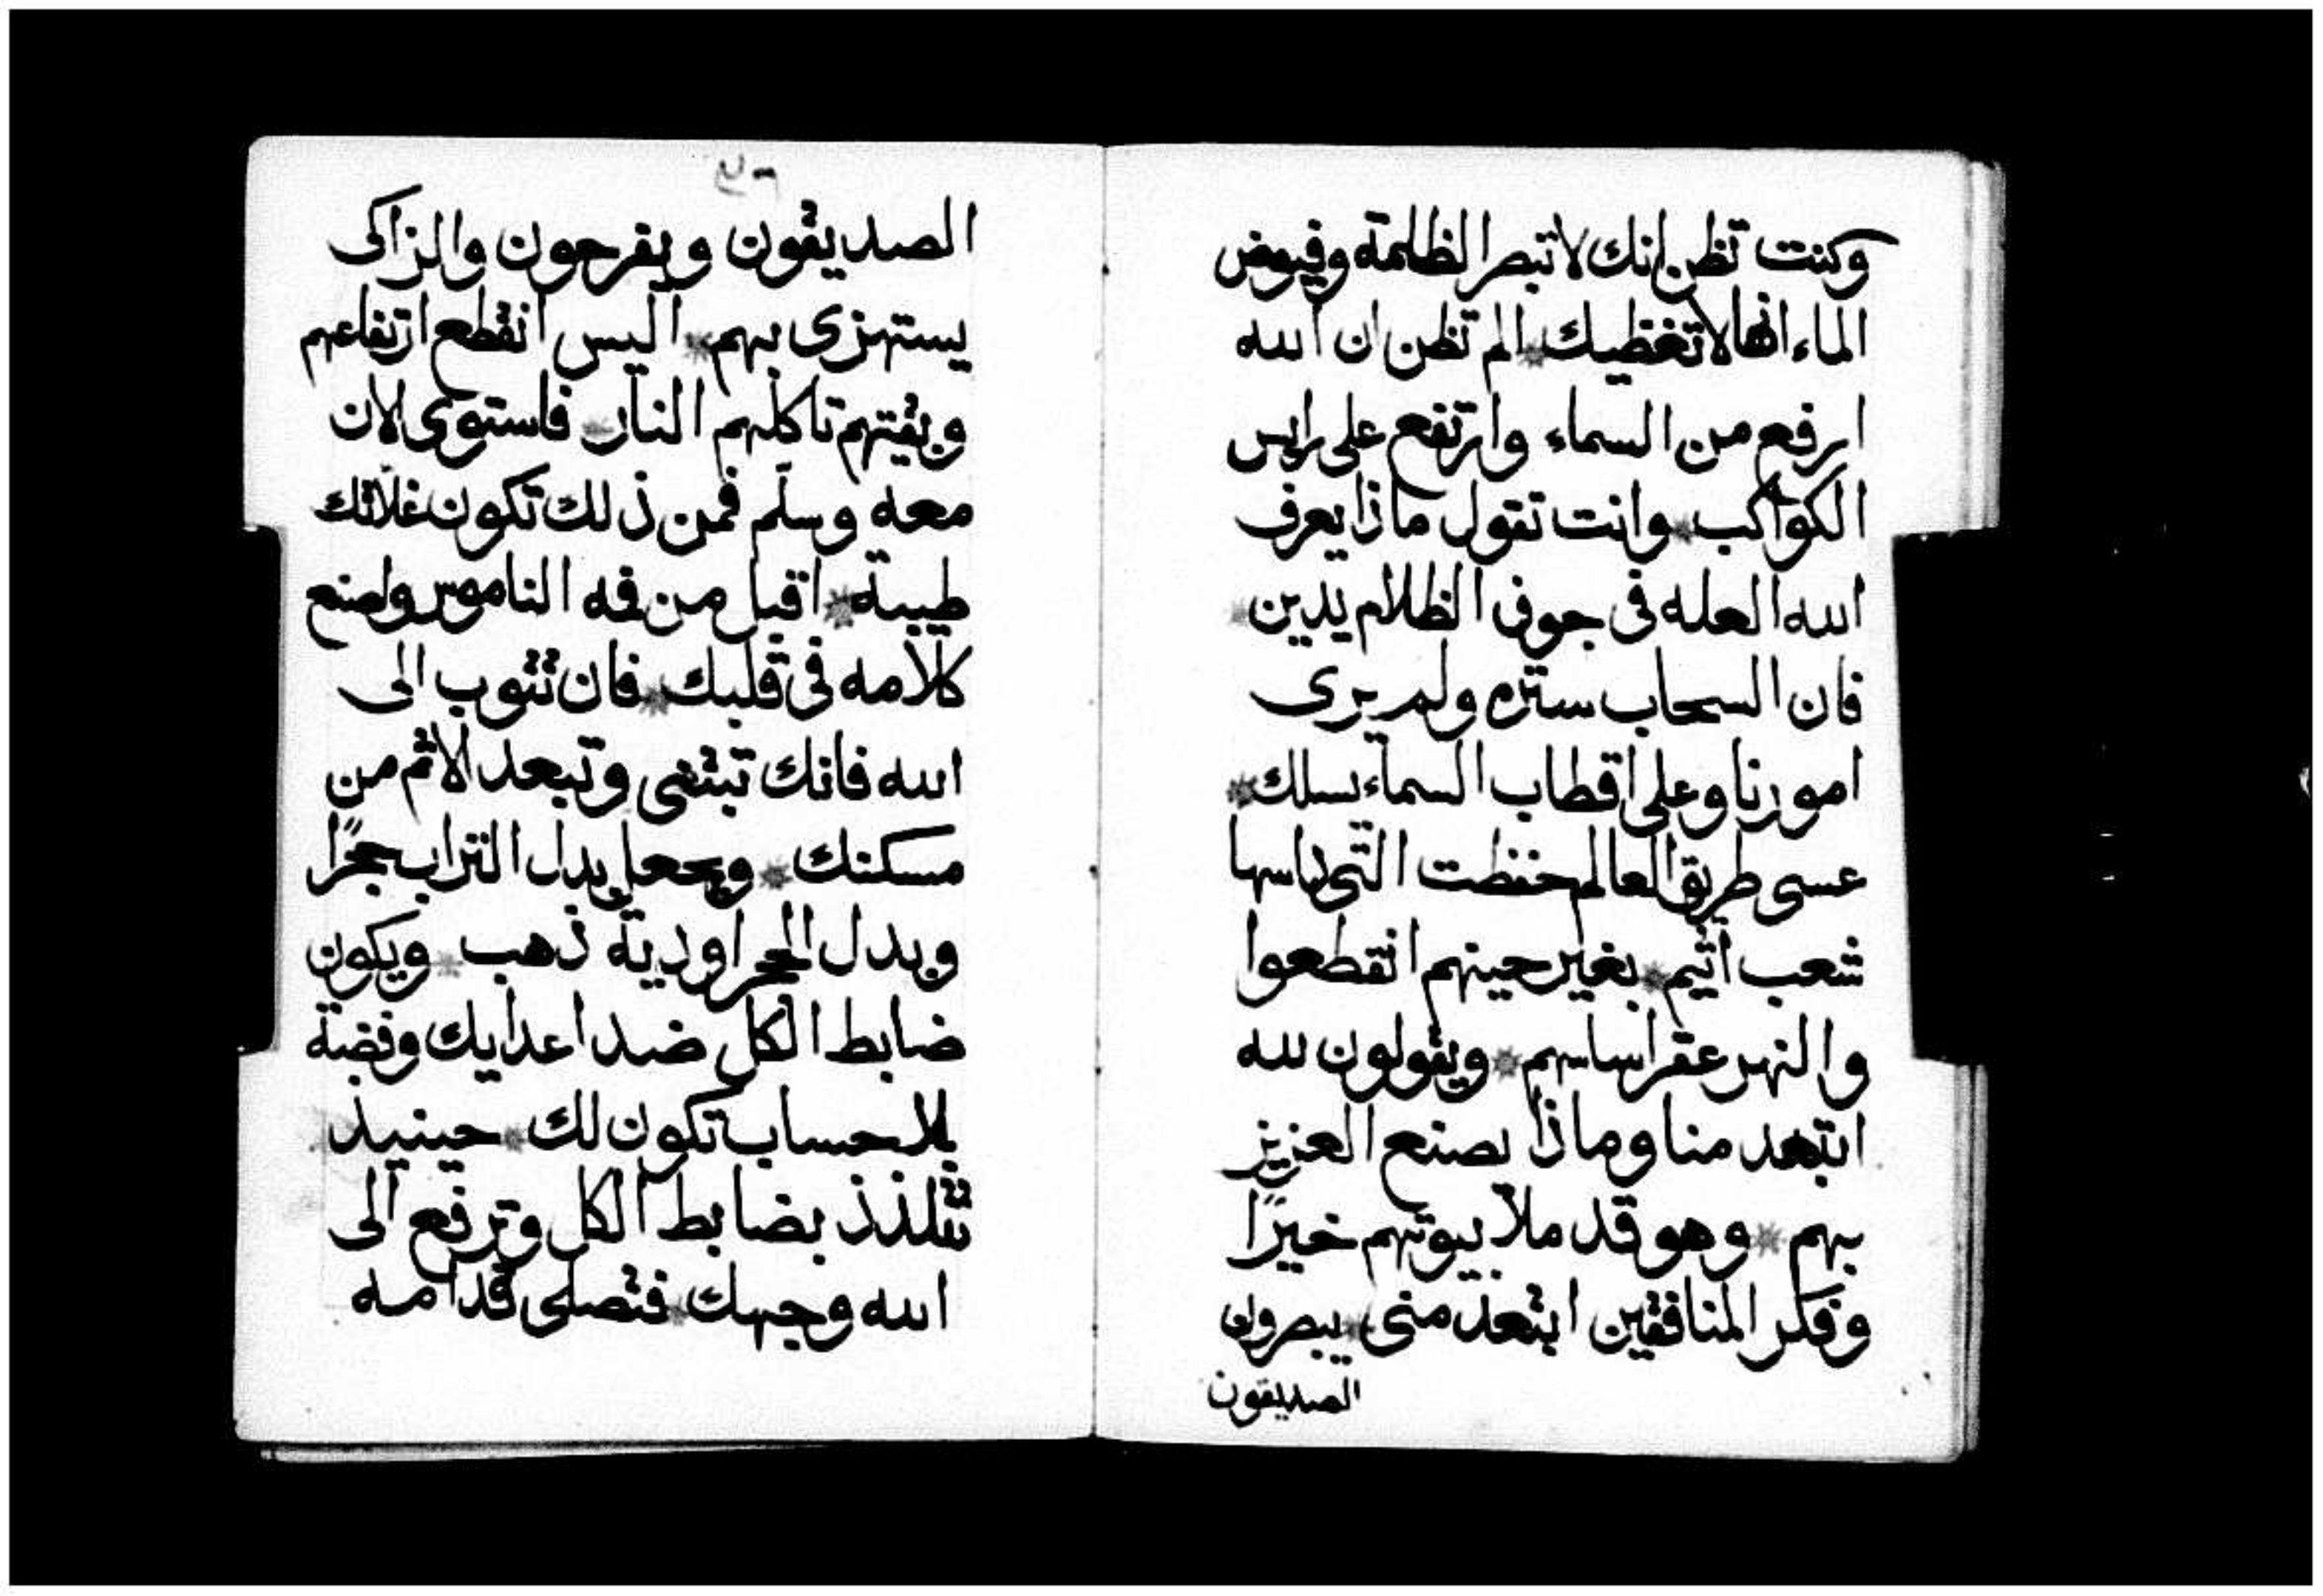 وكنت تظن انك لا تبصر الظلمة وفيوض
الماء انها لا تغطيك الم تظن ان الله
ارفع من السماء وارتفع على رايس
الكواكب وانت تقول ماذا يعرف
الله العله في جوف الظلام يدين
فان السحاب ستره ولم يرى
امورنا وعلى اقطاب السماء يسلك
عسى طريق العالم حفظت التي داسها
شعب اثيم بغير حينهم انقطعوا
والنهر عقر اساسهم ويقولون لله
ابتعد منا وماذا يصنع العزيز
بهم وهو قد ملا بيوتهم خيرًا
وفكر المنافقين ابتعد منى يبصرون
الصديقون
الصديقون ويفرحون والزاكى
يستهزى بهم اليس انقطع ارتفاعهم
وبقيتهم تاكلهم النار فاستوى الان
معه وسلّم فمن ذلك تكون غلاتك
طيبة اقبل من فه الناموس وضع
كلامه في قلبك فان تتوب الى
الله فانك تبتنى وتبعد الاثم من
مسكنك ويجعل بدل التراب حجرًا
وبدل الحجر اودية ذهب ويكون
ضابط الكل ضد اعدايك وفضة
بلا حساب تكون لك حينيذ
تتلذذ بضابط الكل وترفع الى
الله وجهك فتصلى قدامه